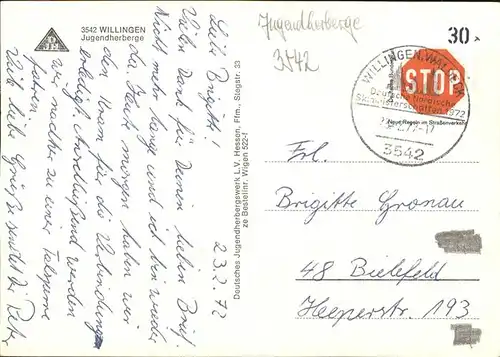 3542 WILLINGEN
Jugendherberge
Jugendherberge
3542
30
WILLINGEN, WALDECK
Deutsche Nordische
Skimeisterschaften 1972
-17
3542
STOP
Neue Regeln im Straßenverkehr
23.2.72
Liebe Brigitte!
Vielen Dank für Deinen lieben Brief.
Nicht mehr lange und ich bin wieder
da. Gleich morgen haben wir
den Kram für die
erledigt. Anschließend werden
wir nachher zu einer Talsperre
fahren.
Viele liebe Grüße sendet Dir Peter
Deutsches Jugendherbergswerk, L.V. Hessen, Ffm., Stegstr. 33
ze Bestellnr. Wigen 522-f
Frl.
Brigitte Gronau
48 Bielefeld
Heeperstr. 193